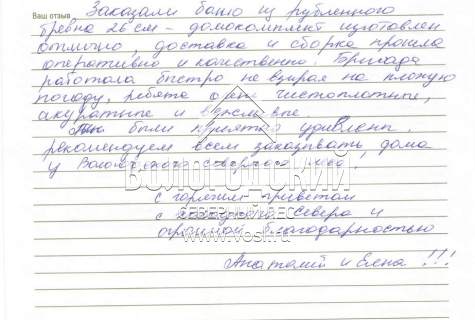 Ваш отзыв
Заказали баню из рубленного
бревна 26 см - домокомплект изготовлен
отлично, доставка и сборка прошла
оперативно и качественно. Бригада
работала быстро не взирая на плохую
погоду, ребята очень чистоплотные,
аккуратные и
Мы были приятно удивлены.
рекомендуем всем заказывать дома
у Вологодского северного леса
ВОЛОГОДСКИЙ
с горячим приветом
СЕВЕРНЫЙ ЛЕС
с севера и
www.vosk.ru
огромной благодарностью
Анатолий и Елена !!!